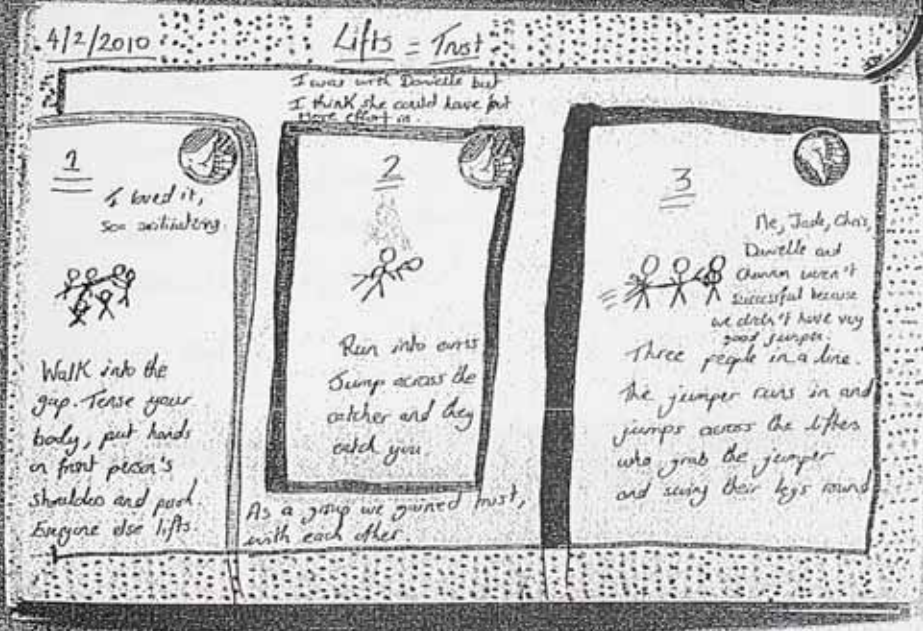 4/2/2010
Lifts = Trust
I was with Danielle but
I think she could have put
more effort in.
1
I loved it,
soo exilirating.
Walk into the
gap. Tense your
body, put hands
on front person's
shoulders and push.
Everyone else lifts.
2
Run into arms
Jump across the
catcher and they
catch you.
As a group we gained trust,
with each other.
3
Me, Jade, Chris,
Danielle and
weren't
successful because
we didn't have very
good jumper.
Three people in a line.
The jumper runs in and
jumps across the lifters
who grab the jumper
and swing their legs round